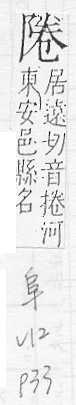 陭
居遠切音捲河
東安邑縣名
阜
U12
P33